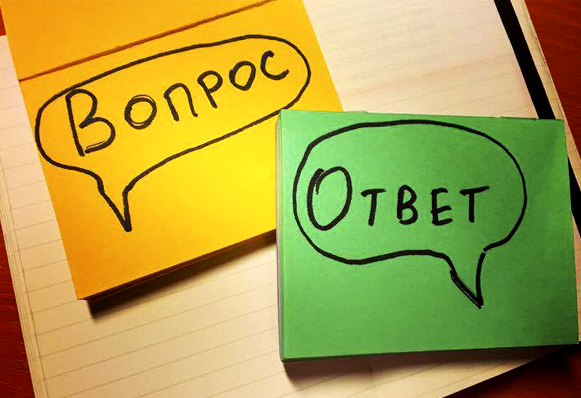 Вопрос
Ответ